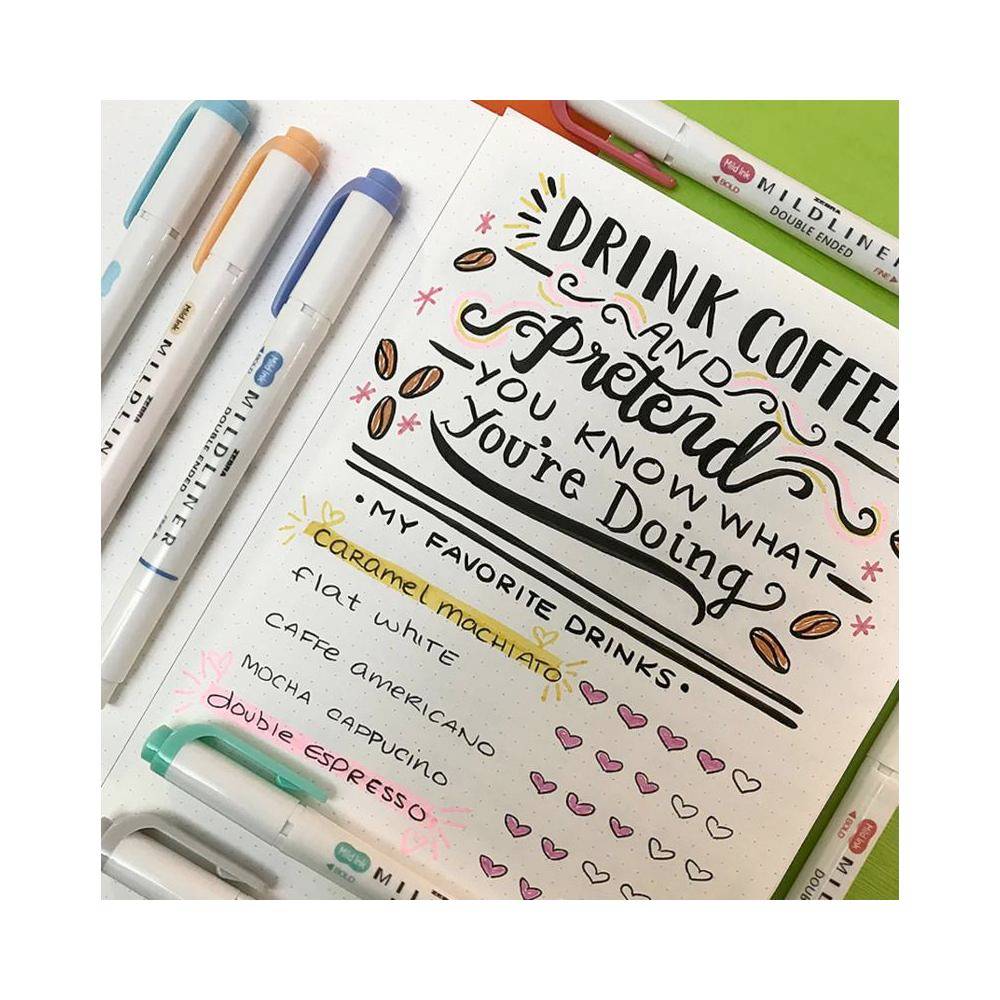 DRINK COFFEE
AND
Pretend
YOU KNOW WHAT
You're Doing
• MY FAVORITE DRINKS •
CARAMEL MACHIATO
flat WHITE
CAFFE AMERICANO
MOCHA CAPPUCINO
double ESPRESSO
Mild Ink
◀BOLD
ZEBRA
MILDLINER
DOUBLE ENDED
FINE▶
Mild Ink
ZEBRA
MILDLIN
Mild Ink
◀BOLD
ZEBRA
MILDLINER
DOUBLE ENDED
Mild Ink
◀BOLD
MIL
Mild Ink
◀BOLD
MIL
DOU